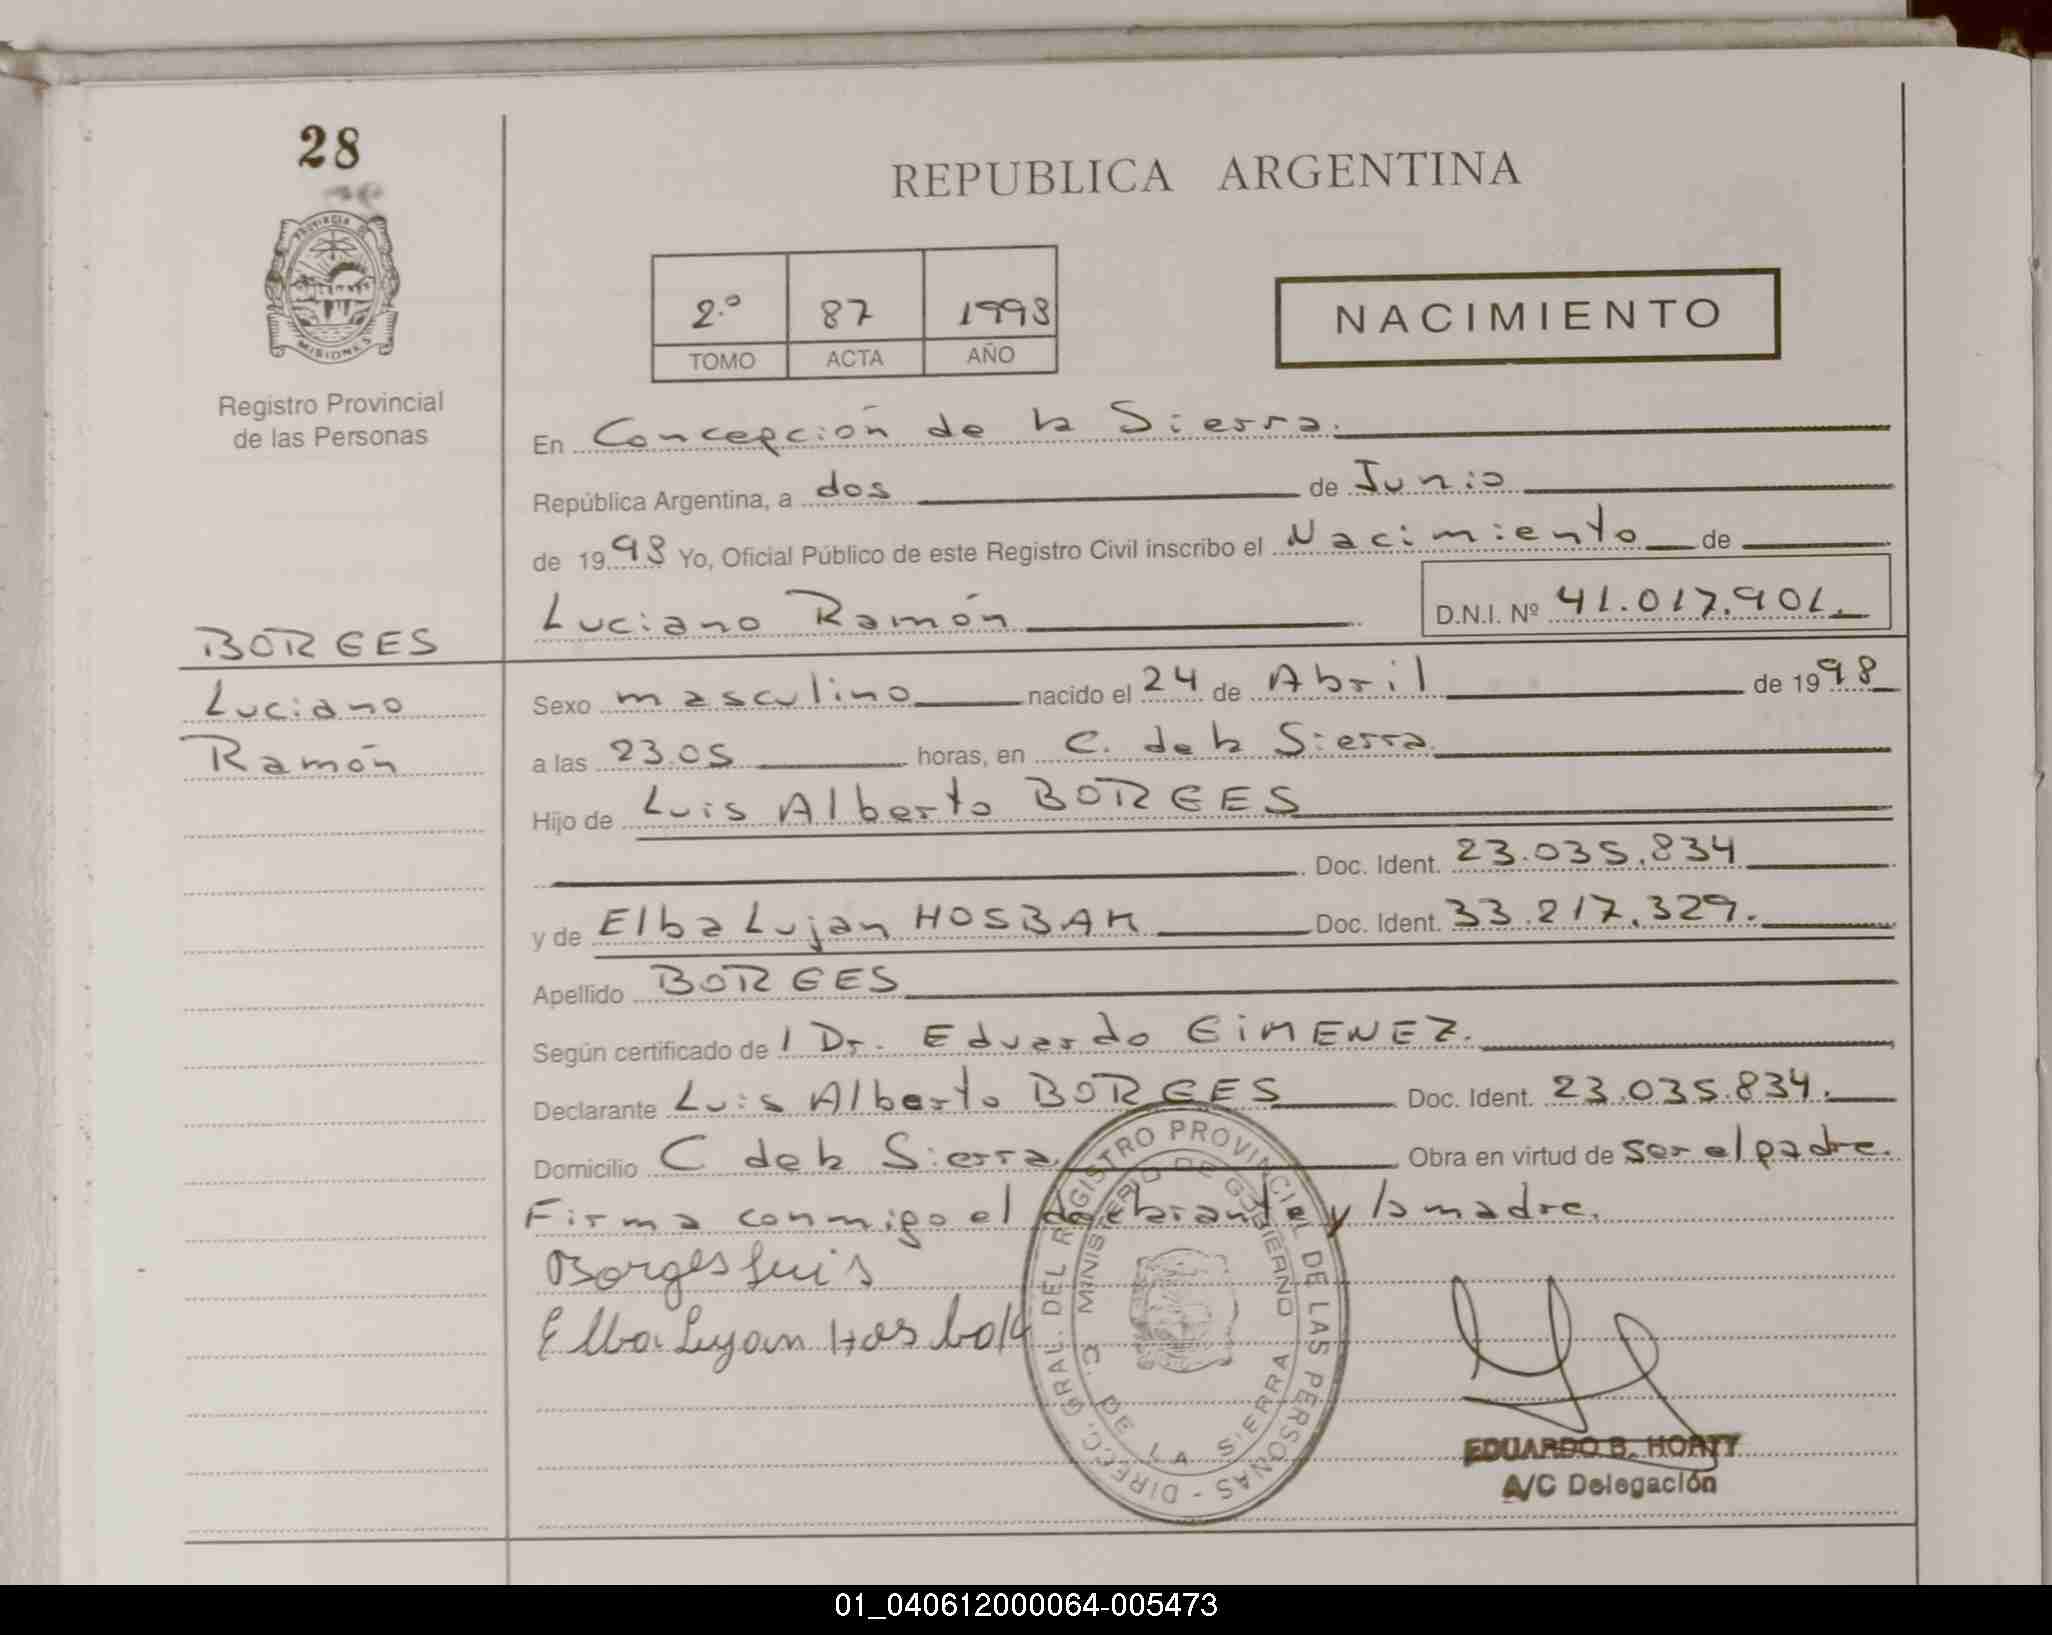 28
REPUBLICA ARGENTINA
PROVINCIA DE
MISIONES
Registro Provincial
de las Personas
2.º 87 1998
TOMO ACTA AÑO
NACIMIENTO
En Concepción de la Sierra.
República Argentina, a dos de Junio
de 1998 Yo, Oficial Público de este Registro Civil inscribo el Nacimiento de
Luciano Ramón D.N.I. Nº 41.017.901.
BORGES
Luciano
Ramón
Sexo masculino nacido el 24 de Abril de 1998
a las 23.05 horas, en C. de la Sierra
Hijo de Luis Alberto BORGES
Doc. Ident. 23.035.834
y de Elba Lujan HOSBAK Doc. Ident. 33.217.329.
Apellido BORGES
Según certificado de l Dr. Eduardo GIMENEZ.
Declarante Luis Alberto BORGES Doc. Ident. 23.035.834.
Domicilio C de la Sierra Obra en virtud de ser el padre.
Firma conmigo el declarante y la madre.
Borges Luis
Elba Lujan Hosbak
DIRECC. GRAL. DEL REGISTRO PROVINCIAL DE LAS PERSONAS -
MINISTERIO DE GOBIERNO
C. DE LA SIERRA
EDUARDO B. HORTY
A/C Delegación
01_040612000064-005473